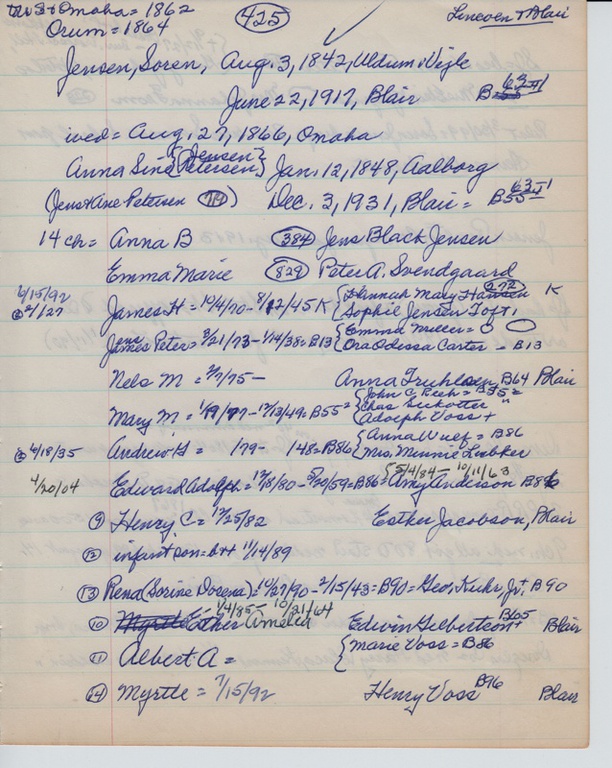 Omaha = 1862
425
Lincoln & Blair
Orum = 1864
Jensen, Soren, Aug. 3, 1842, Uldum, Vejle
June 22, 1917, Blair B 63-1
wed = Aug. 27, 1866, Omaha
Anna Sine {Jensen} {Petersen} Jan. 12, 1848, Aalborg
(Jens & Ane Petersen 719) Dec. 3, 1931, Blair = B 63-1
14 ch = Anna B 384 Jens Black Jensen
Emma Marie 829 Peter A. Svendgaard
2/15/92 James H = 10/4/70 - 8/12/45 K {Hannah Mary Hansen 272 K
@ 2/1/27 {Sophie Jensen Toft
James Jens Peter = 3/21/73 - 1/14/38 = B13 {Emma Miller = 0
{Ora Odessa Carter = B13
Nels M = 3/7/75 - Anna Truhlsen, B64 Blair
Mary M = 1/19/77 - 12/13/49 = B55² {John C Rech = B55²
{Chas Sickotter "
{Adolph Voss +
@ 4/18/35 Andrew G = 179- 148 = B86 {Anna Wulf = B86
{Mrs. Minnie Liebker
4/20/04 Edward Adolph = 12/18/80 - 8/20/59 = B86 = {5/4/84 - 10/11/63 Amy Anderson B86
9 Henry C = 12/25/82 Esther Jacobson, Blair
12 infant son = b++ 11/14/89
13 Rena (Sorine Dorena) = 10/27/90 - 2/15/43 = B90 = Geo. Kuhr, Jr. B90
10 Myrtle Esther Amelia 1/4/85 - 10/21/64 Edwin Gilbertson + B65 Blair
11 Albert A = {Marie Voss = B86
14 Myrtle = 7/15/92 Henry Voss B96 Blair